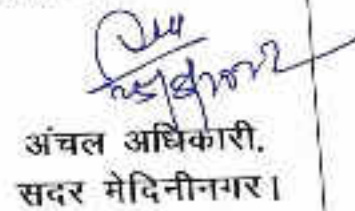 अंचल अधिकारी,
सदर मेदिनीनगर।